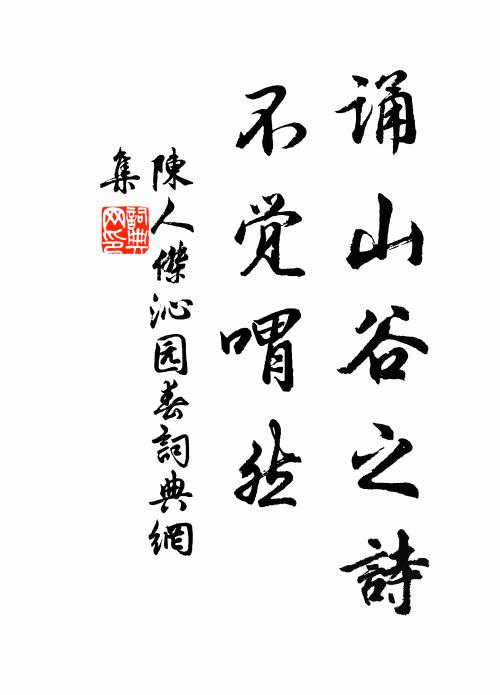 诵山谷之詩
不觉喟然
陳人傑沁园春詞典網
集
詞典网印